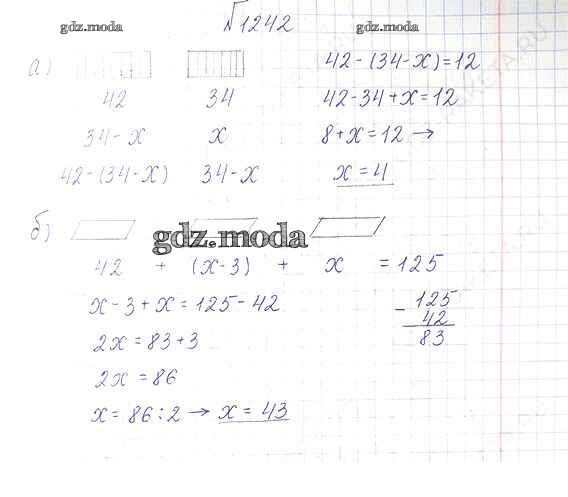 №1242
gdz.moda gdz.moda
а) 42-(34-x)=12
42 34 42-34+x=12
34-x x 8+x=12 →
42-(34-x) 34-x x=4
б)
gdz.moda
42 + (x-3) + x = 125
x-3+x=125-42
2x=83+3
2x=86
x=86:2 → x=43
-125
42
83